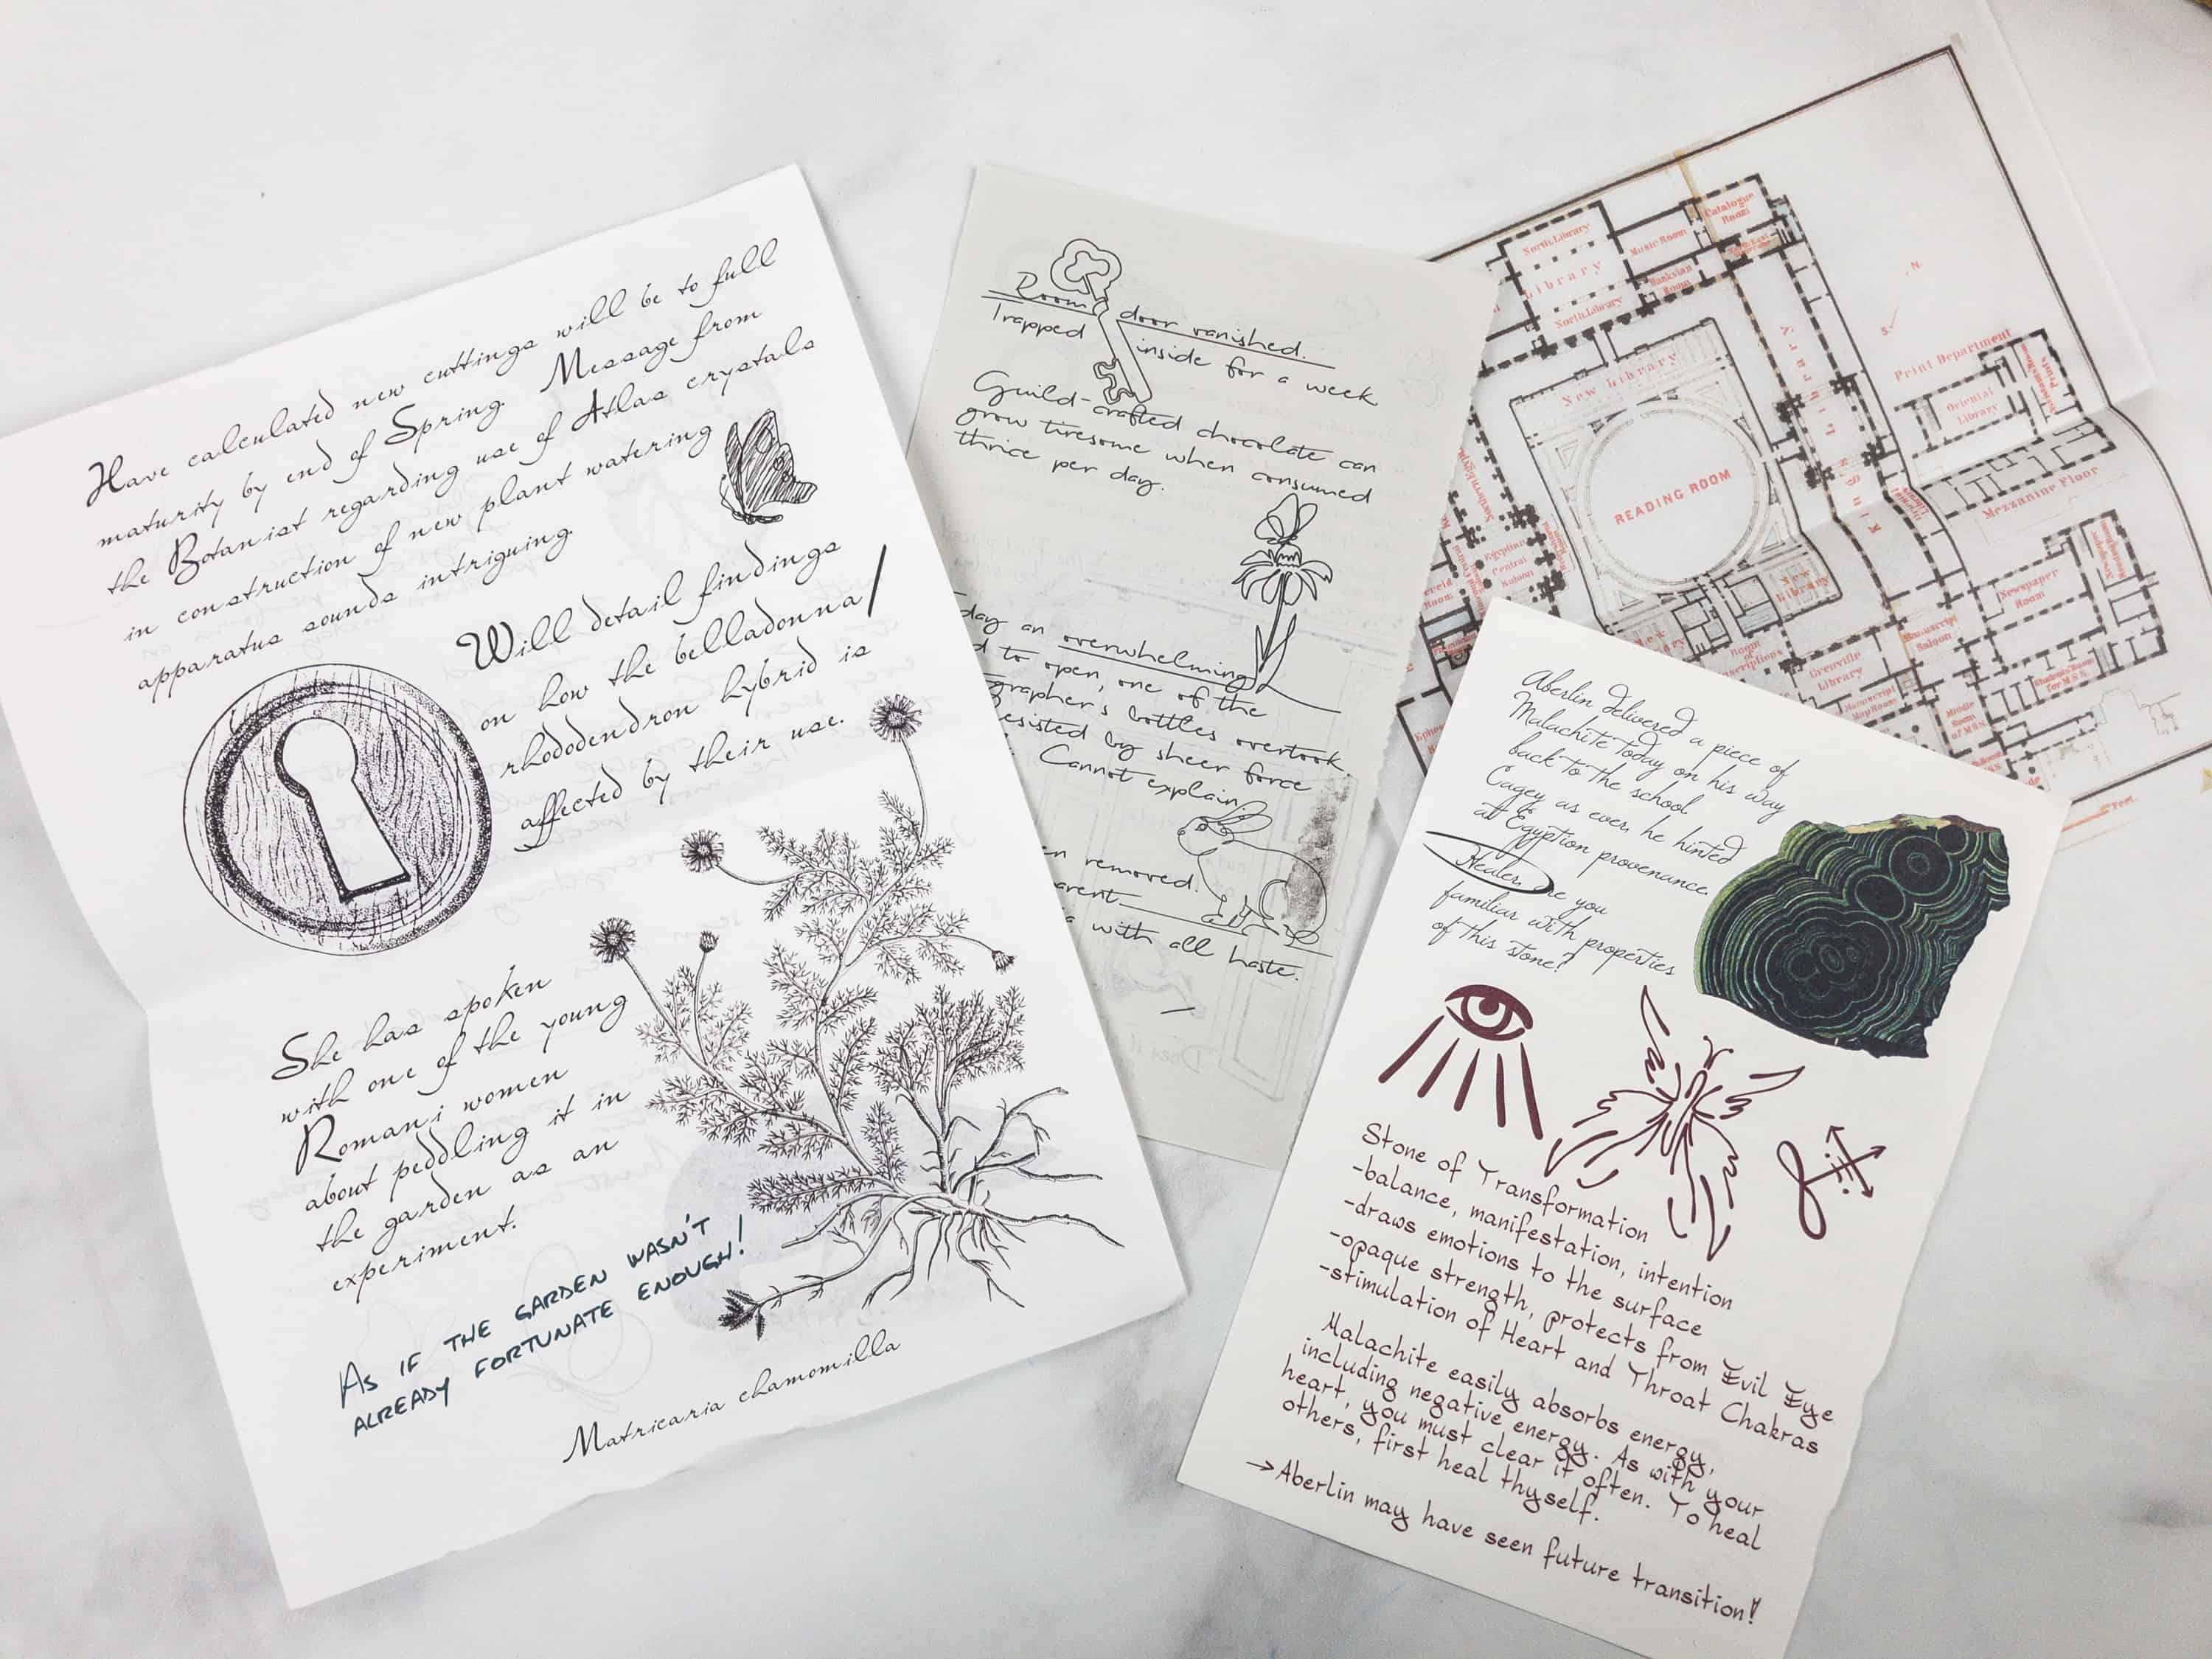 Have calculated new cuttings will be to full
maturity by end of Spring. Message from
the Botanist regarding use of Atlas crystals
in construction of new plant watering
apparatus sounds intriguing.
Will detail findings
on how the belladonna/
rhododendron hybrid is
affected by their use.
She has spoken
with one of the young
Romani women
about peddling it in
the garden as an
experiment.
AS IF THE GARDEN WASN'T
ALREADY FORTUNATE ENOUGH!
Matricaria chamomilla
Room door vanished.
Trapped inside for a week
Guild-crafted chocolate can
grow tiresome when consumed
thrice per day.
day an overwhelming
d to open, one of the
grapher's bottles overtook
esisted by sheer force
Cannot explain.
en removed.
arent
a with all haste.
North Library
Library
North Library
Music Room
Catalogue Room
Banksian Room
New Library
READING ROOM
Library
King's
Print Department
Oriental Library
Mezzanine Floor
Newspaper Room
Egyptian
Central
Saloon
New Library
Manuscript Saloon
Grenville Library
Manuscript
Map Room
Middle
Room
of M.S.S.
Students' Room
for M.S.S.
N.
S
Aberlin delivered a piece of
Malachite today on his way
back to the school
Cagey as ever, he hinted
at Egyption provenance.
Healer, are you
familiar with properties
of this stone?
Stone of Transformation
-balance, manifestation, intention
-draws emotions to the surface
-opaque strength, protects from Evil Eye
-stimulation of Heart and Throat Chakras
Malachite easily absorbs energy,
including negative energy. As with your
heart, you must clear it often. To heal
others, first heal thyself.
→Aberlin may have seen future transition!